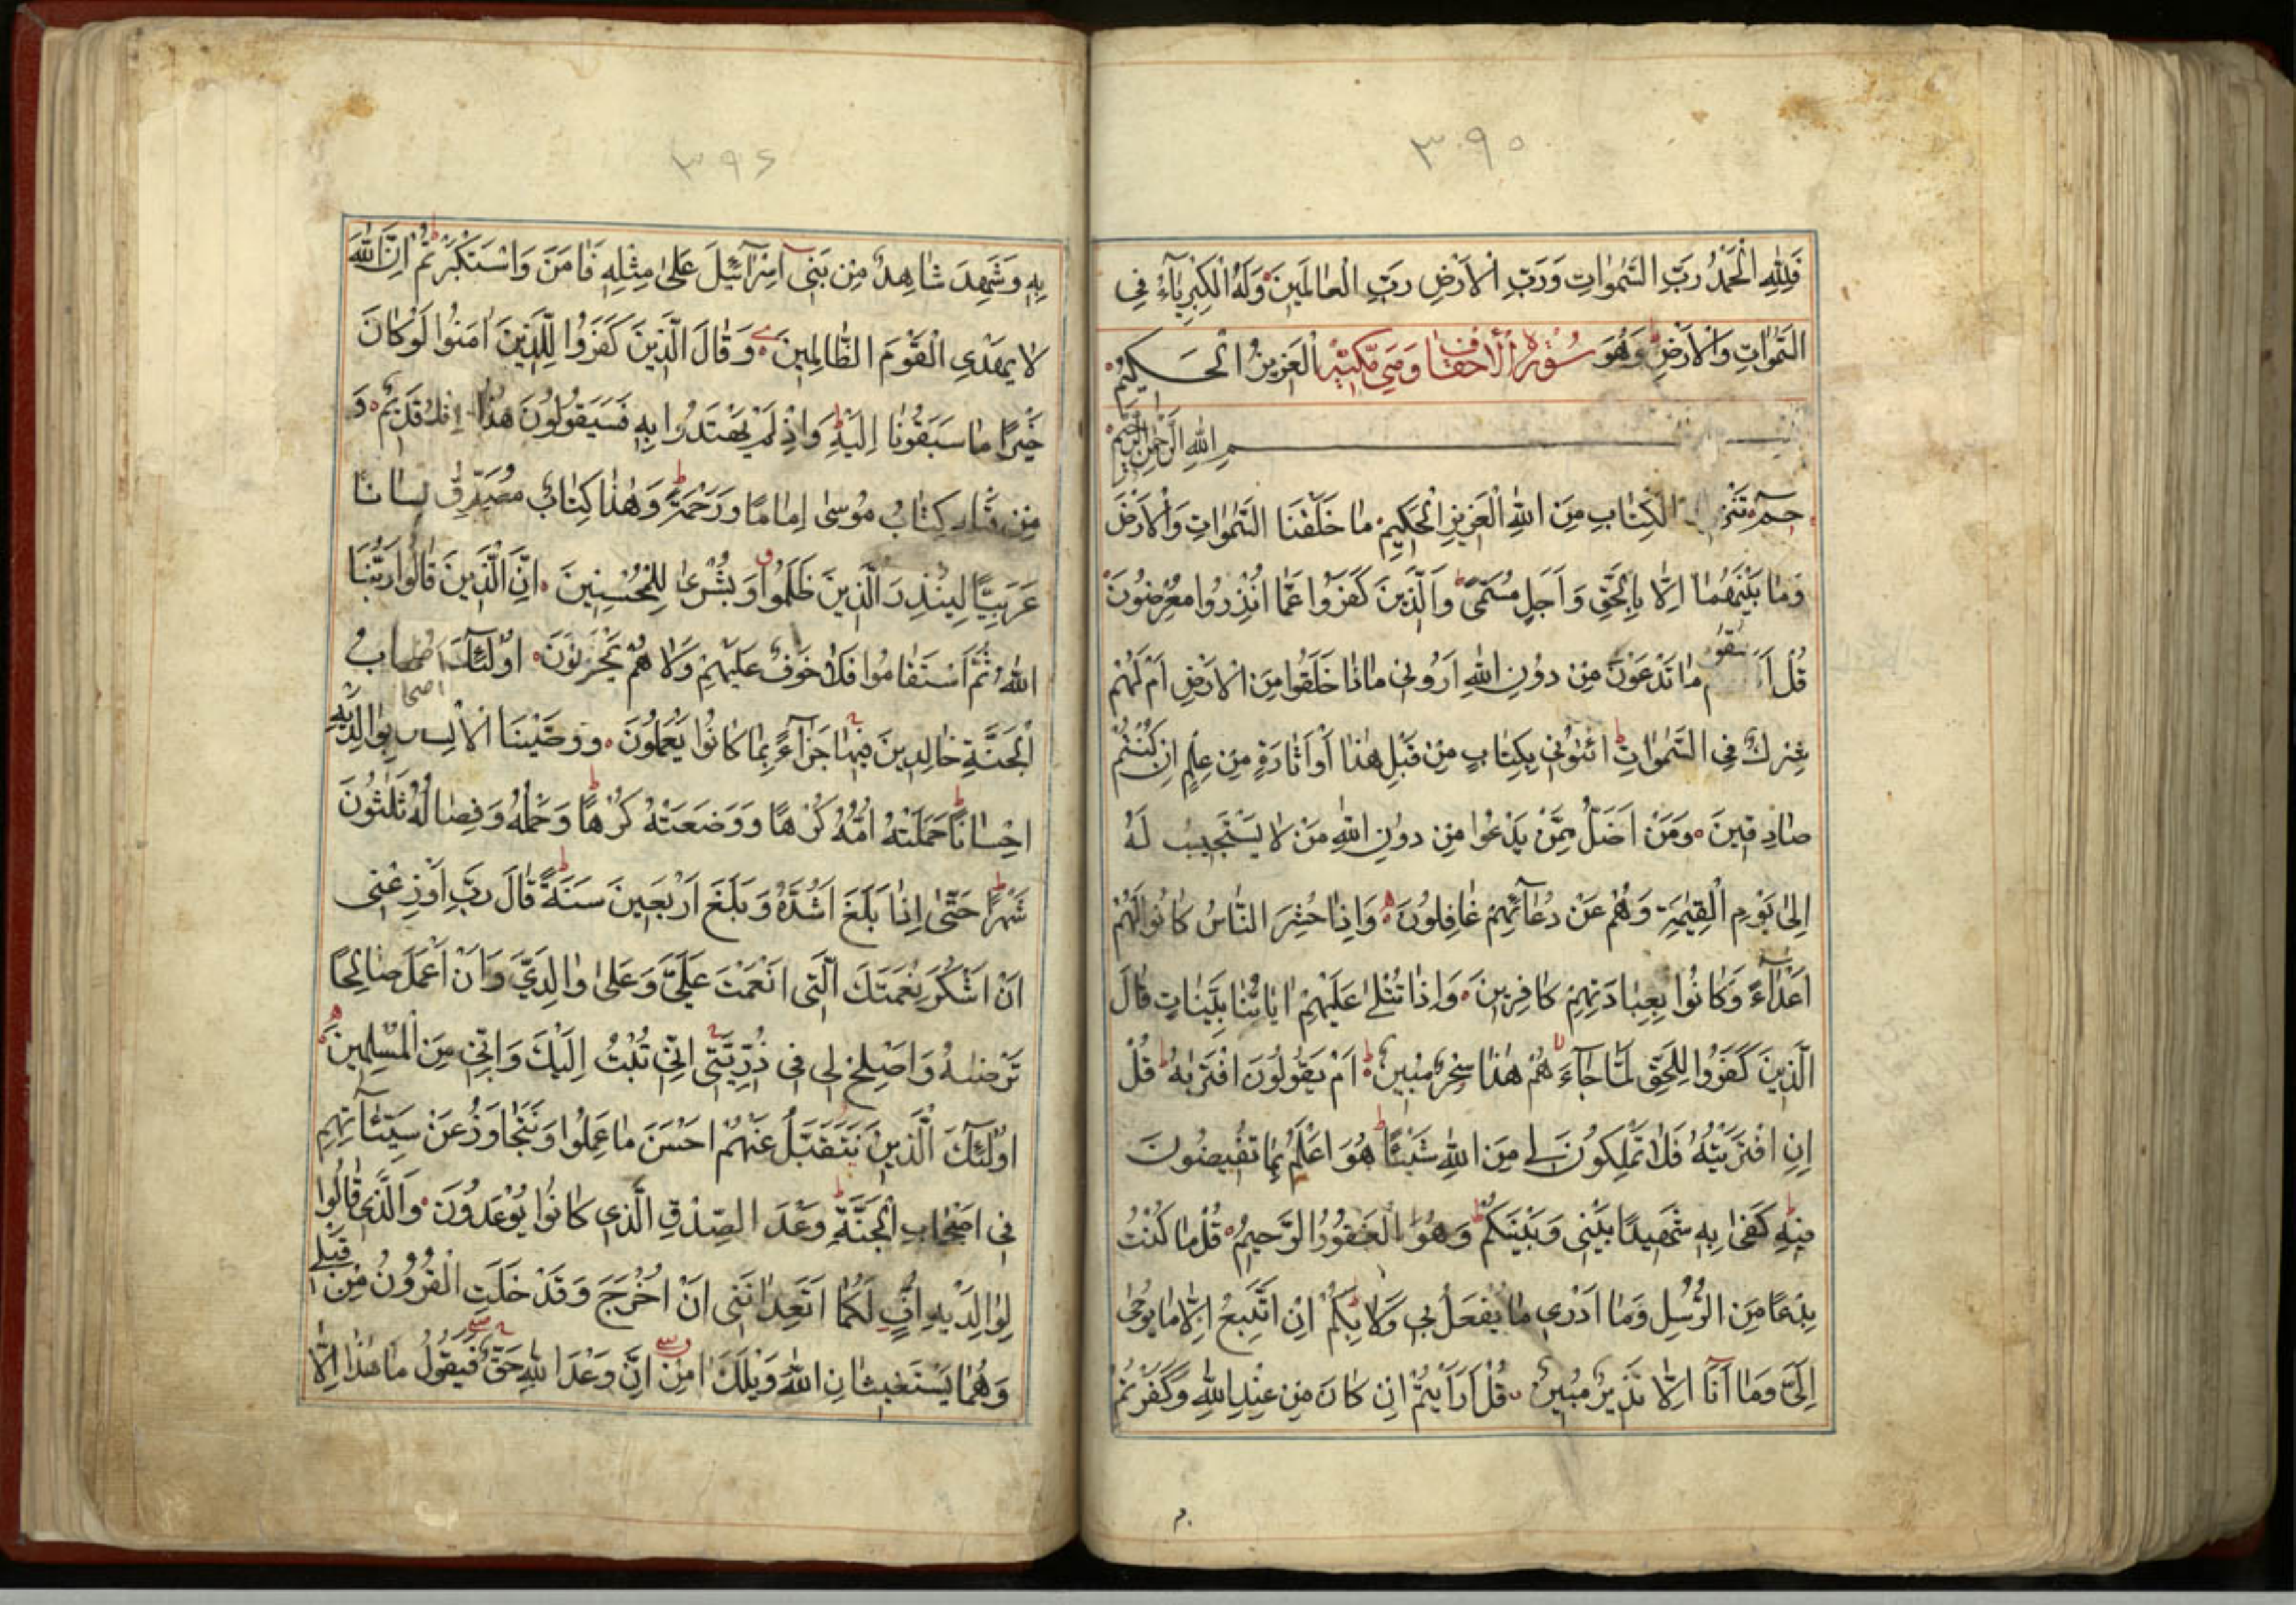 ٣٩٥
فَلِلّٰهِ الْحَمْدُ رَبِّ السَّمٰوَاتِ وَرَبِّ الْاَرْضِ رَبِّ الْعَالَمِينَ وَلَهُ الْكِبْرِيَآءُ فِي
السَّمٰوَاتِ وَالْاَرْضِ وَهُوَ سُورَةُ الْاَحْقَاف وَهِيَ مَكِّيَّة الْعَزِيزُ الْحَكِيمُ
بِسْمِ اللّٰهِ الرَّحْمٰنِ الرَّحِيمِ
حٰمٓ تَنْزِ الْكِتَابِ مِنَ اللّٰهِ الْعَزِيزِ الْحَكِيمِ مَا خَلَقْنَا السَّمٰوَاتِ وَالْاَرْضَ
وَمَا بَيْنَهُمَا اِلَّا بِالْحَقِّ وَاَجَلٍ مُسَمًّى وَالَّذِينَ كَفَرُوا عَمَّا اُنْذِرُوا مُعْرِضُونَ
قُلْ مَا تَدْعُونَ مِنْ دُونِ اللّٰهِ اَرُونِي مَاذَا خَلَقُوا مِنَ الْاَرْضِ اَمْ لَهُمْ
شِرْكٌ فِي السَّمٰوَاتِ ائْتُونِي بِكِتَابٍ مِنْ قَبْلِ هٰذَا اَوْ اَثَارَةٍ مِنْ عِلْمٍ اِنْ كُنْتُمْ
صَادِقِينَ وَمَنْ اَضَلُّ مِمَّنْ يَدْعُوا مِنْ دُونِ اللّٰهِ مَنْ لَا يَسْتَجِيبُ لَهُ
اِلٰى يَوْمِ الْقِيٰمَةِ وَهُمْ عَنْ دُعَآئِهِمْ غَافِلُونَ وَاِذَا حُشِرَ النَّاسُ كَانُوا لَهُمْ
اَعْدَآءً وَكَانُوا بِعِبَادَتِهِمْ كَافِرِينَ وَاِذَا تُتْلٰى عَلَيْهِمْ اٰيَاتُنَا بَيِّنَاتٍ قَالَ
الَّذِينَ كَفَرُوا لِلْحَقِّ لَمَّا جَآءَهُمْ هٰذَا سِحْرٌ مُبِينٌ اَمْ يَقُولُونَ افْتَرٰيهُ قُلْ
اِنِ افْتَرَيْتُهُ فَلَا تَمْلِكُونَ لِي مِنَ اللّٰهِ شَيْئًا هُوَ اَعْلَمُ بِمَا تُفِيضُونَ
فِيهِ كَفٰى بِهِ شَهِيدًا بَيْنِي وَبَيْنَكُمْ وَهُوَ الْغَفُورُ الرَّحِيمُ قُلْ مَا كُنْتُ
بِدْعًا مِنَ الرُّسُلِ وَمَا اَدْرِي مَا يُفْعَلُ بِي وَلَا بِكُمْ اِنْ اَتَّبِعُ اِلَّا مَا يُوحٰى
اِلَيَّ وَمَا اَنَا اِلَّا نَذِيرٌ مُبِينٌ قُلْ اَرَاَيْتُمْ اِنْ كَانَ مِنْ عِنْدِ اللّٰهِ وَكَفَرْتُمْ
٣٩٦
بِهِ وَشَهِدَ شَاهِدٌ مِنْ بَنِي اِسْرَآئِيلَ عَلٰى مِثْلِهِ فَاٰمَنَ وَاسْتَكْبَرْتُمْ اِنَّ اللّٰهَ
لَا يَهْدِي الْقَوْمَ الظَّالِمِينَ وَقَالَ الَّذِينَ كَفَرُوا لِلَّذِينَ اٰمَنُوا لَوْ كَانَ
خَيْرًا مَا سَبَقُونَا اِلَيْهِ وَاِذْ لَمْ يَهْتَدُوا بِهِ فَسَيَقُولُونَ هٰذَا اِفْكٌ قَدِيمٌ وَ
مِنْ قَبْلِهِ كِتَابُ مُوسٰى اِمَامًا وَرَحْمَةً وَهٰذَا كِتَابٌ مُصَدِّقٌ لِسَانًا
عَرَبِيًّا لِيُنْذِرَ الَّذِينَ ظَلَمُوا وَبُشْرٰى لِلْمُحْسِنِينَ اِنَّ الَّذِينَ قَالُوا رَبُّنَا
اللّٰهُ ثُمَّ اسْتَقَامُوا فَلَا خَوْفٌ عَلَيْهِمْ وَلَا هُمْ يَحْزَنُونَ اُولٰئِكَ اَصْحَابُ
الْجَنَّةِ خَالِدِينَ فِيهَا جَزَآءً بِمَا كَانُوا يَعْمَلُونَ وَوَصَّيْنَا الْاِنْسَانَ بِوَالِدَيْهِ
اِحْسَانًا حَمَلَتْهُ اُمُّهُ كُرْهًا وَوَضَعَتْهُ كُرْهًا وَحَمْلُهُ وَفِصَالُهُ ثَلٰثُونَ
شَهْرًا حَتّٰى اِذَا بَلَغَ اَشُدَّهُ وَبَلَغَ اَرْبَعِينَ سَنَةً قَالَ رَبِّ اَوْزِعْنِي
اَنْ اَشْكُرَ نِعْمَتَكَ الَّتِي اَنْعَمْتَ عَلَيَّ وَعَلٰى وَالِدَيَّ وَاَنْ اَعْمَلَ صَالِحًا
تَرْضٰيهُ وَاَصْلِحْ لِي فِي ذُرِّيَّتِي اِنِّي تُبْتُ اِلَيْكَ وَاِنِّي مِنَ الْمُسْلِمِينَ
اُولٰئِكَ الَّذِينَ نَتَقَبَّلُ عَنْهُمْ اَحْسَنَ مَا عَمِلُوا وَنَتَجَاوَزُ عَنْ سَيِّئَاتِهِمْ
فِي اَصْحَابِ الْجَنَّةِ وَعْدَ الصِّدْقِ الَّذِي كَانُوا يُوعَدُونَ وَالَّذِي قَالُوا
لِوَالِدَيْهِ اُفٍّ لَكُمَا اَتَعِدَانِنِي اَنْ اُخْرَجَ وَقَدْ خَلَتِ الْقُرُونُ مِنْ قَبْلِي
وَهُمَا يَسْتَغِيثَانِ اللّٰهَ وَيْلَكَ اٰمِنْ اِنَّ وَعْدَ اللّٰهِ حَقٌّ فَيَقُولُ مَا هٰذَا اِلَّا